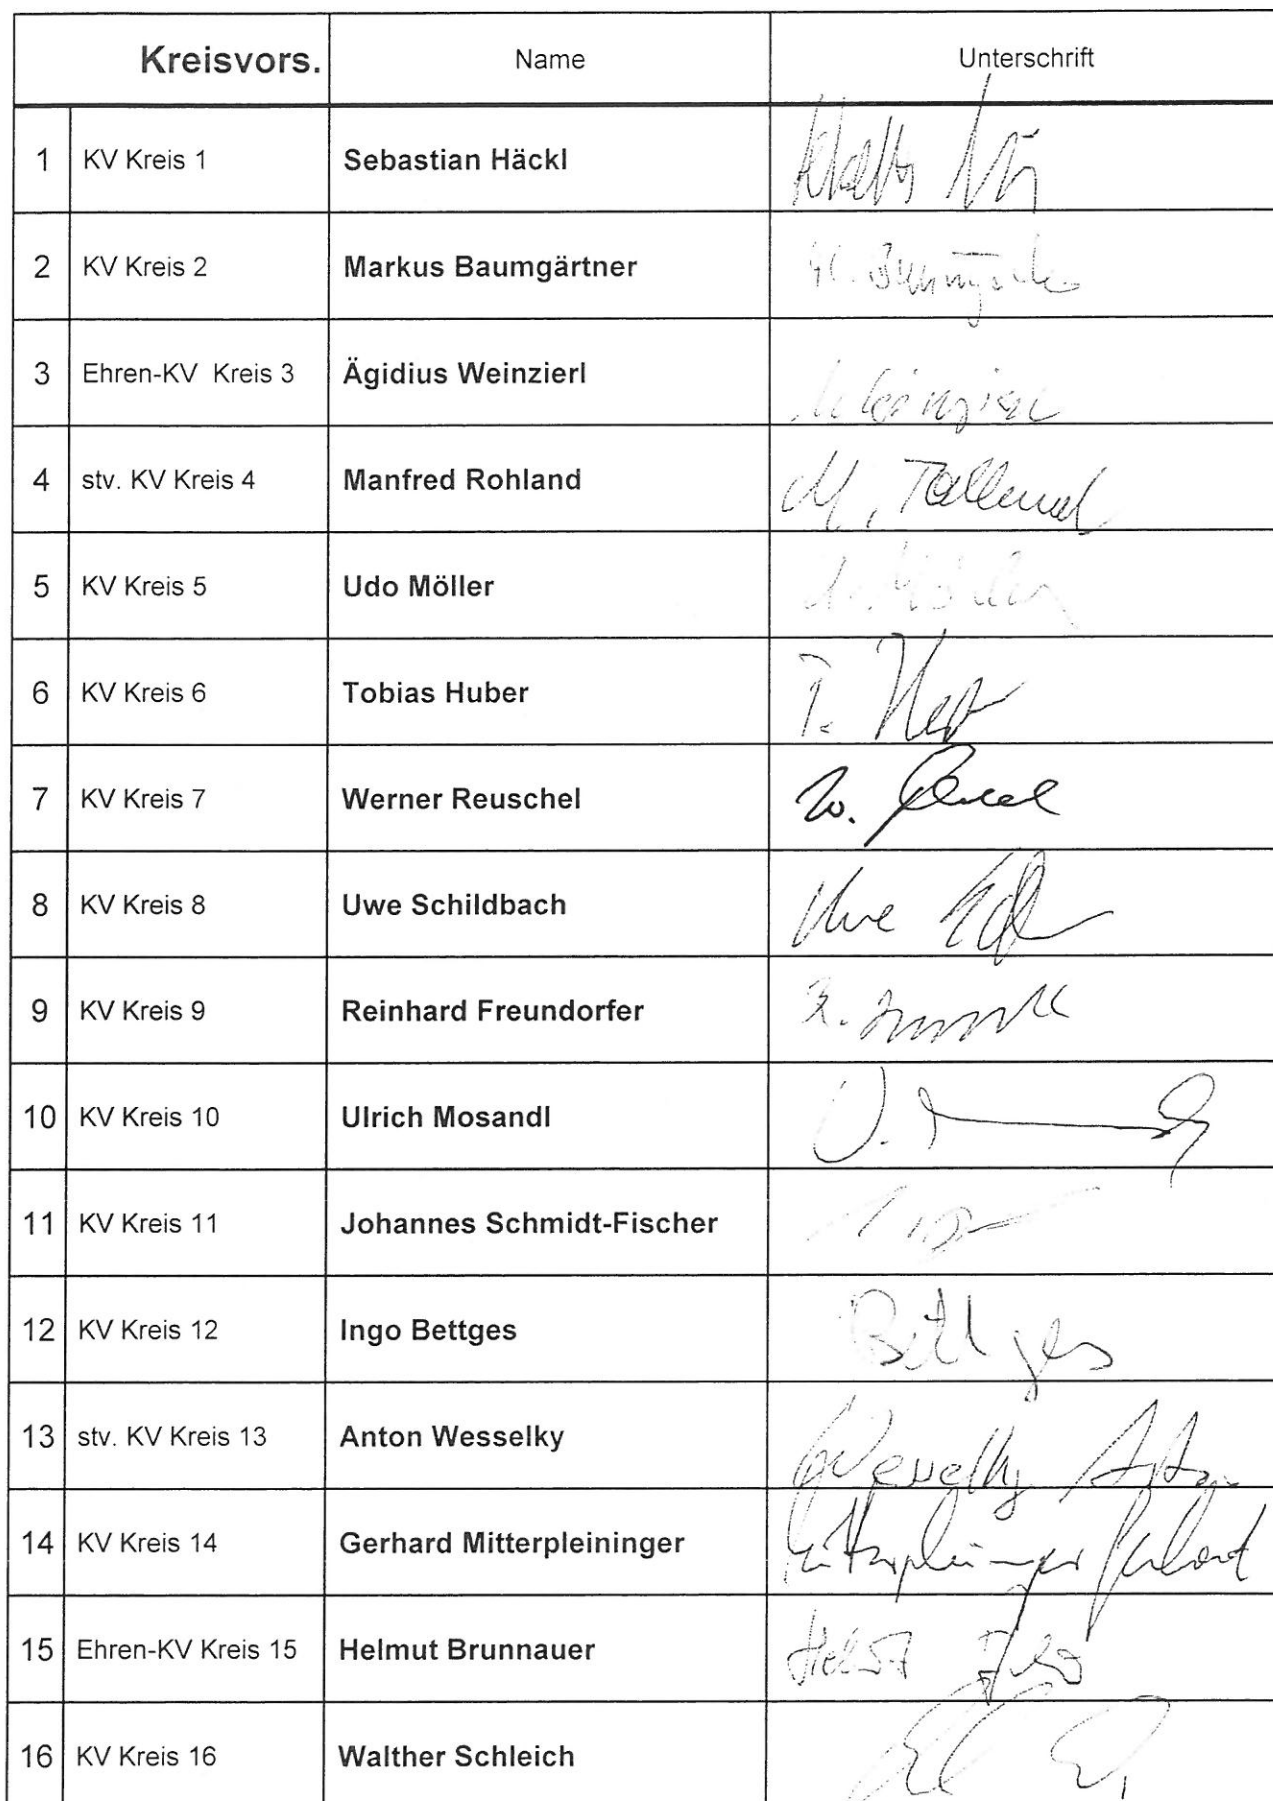 Kreisvors. Name Unterschrift
1 KV Kreis 1 Sebastian Häckl
2 KV Kreis 2 Markus Baumgärtner
3 Ehren-KV Kreis 3 Ägidius Weinzierl
4 stv. KV Kreis 4 Manfred Rohland M.
5 KV Kreis 5 Udo Möller
6 KV Kreis 6 Tobias Huber T.
7 KV Kreis 7 Werner Reuschel W.
8 KV Kreis 8 Uwe Schildbach Uwe
9 KV Kreis 9 Reinhard Freundorfer R.
10 KV Kreis 10 Ulrich Mosandl U.
11 KV Kreis 11 Johannes Schmidt-Fischer
12 KV Kreis 12 Ingo Bettges Bettges
13 stv. KV Kreis 13 Anton Wesselky Wesselky Anton
14 KV Kreis 14 Gerhard Mitterpleininger Mitterpleininger Gerhard
15 Ehren-KV Kreis 15 Helmut Brunnauer
16 KV Kreis 16 Walther Schleich